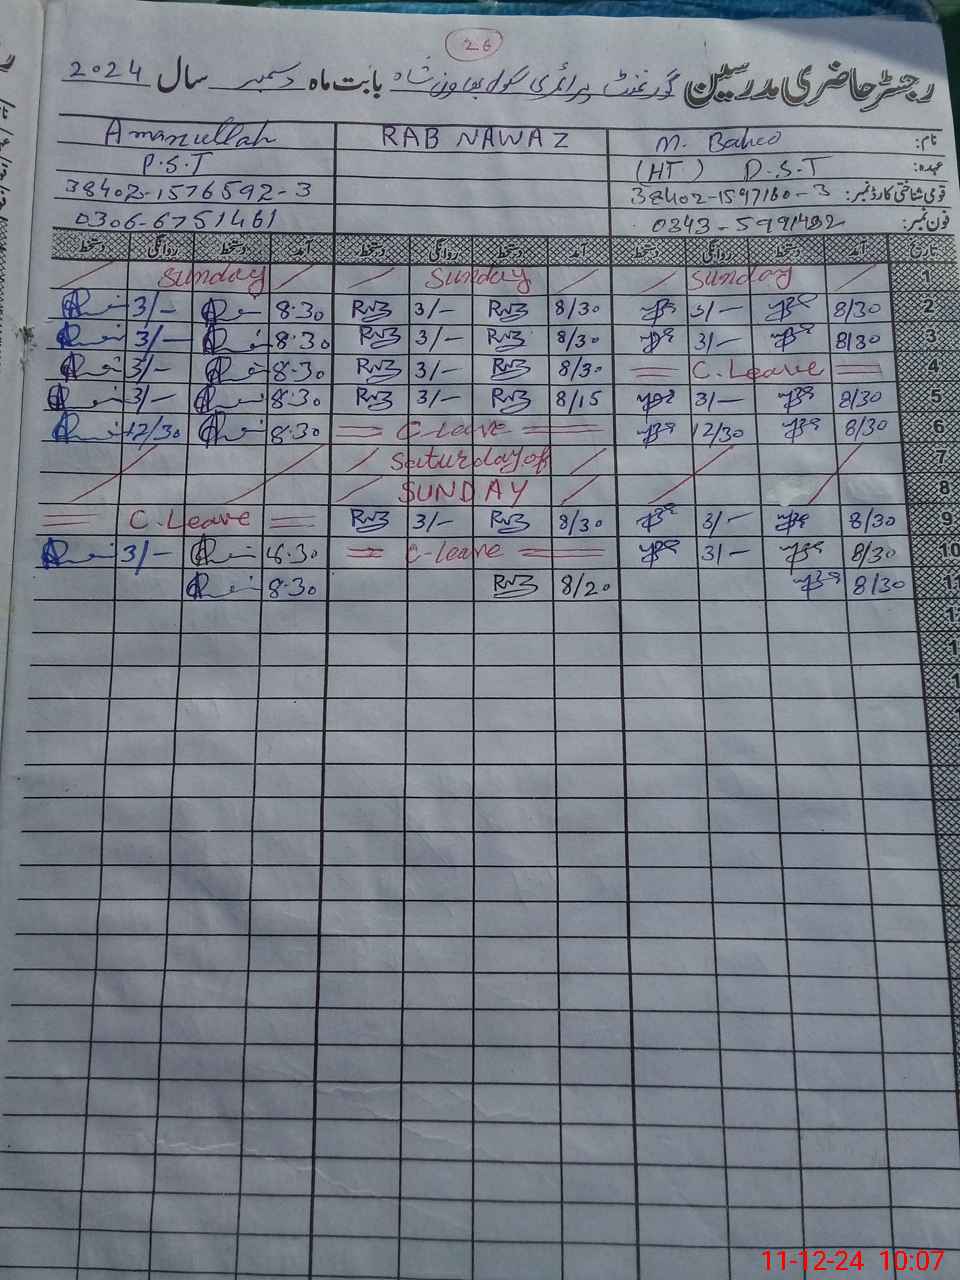 26
رجسٹر حاضری مدرسین گورنمنٹ پرائمری سکول شاہ بابت ماہ دسمبر سال 2024
نام: M. Bahoo RAB NAWAZ Amanullah
عہدہ: (HT) D.S.T P.S.T
قومی شناختی کارڈ نمبر: 38402-1597160-3 38402-1576592-3
فون نمبر: 0343-5991482 0306-6751461
تاریخ آمد دستخط روانگی دستخط آمد دستخط روانگی دستخط آمد دستخط روانگی دستخط
1 Sunday Sunday Sunday
2 8/30 3/- 8/30 RNB 3/- RNB 8:30 3/-
3 8/30 3/- 8/30 RNB 3/- RNB 8:30 3/-
4 C.Leave 8/30 RNB 3/- RNB 8:30 3/-
5 8/30 3/- 8/15 RNB 3/- RNB 8:30 3/-
6 8/30 12/30 C-Leave 8:30 12/30
7 Saturday of
8 SUNDAY
9 8/30 3/- 8/30 RNB 3/- RNB C.Leave
10 8/30 3/- C-leave 8:30 3/-
11 8/30 8/20 RNB 8:30
11-12-24 10:07